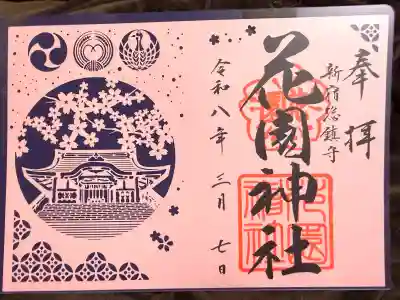 奉拝
新宿総鎮守
花園神社
令和八年 三月 七日